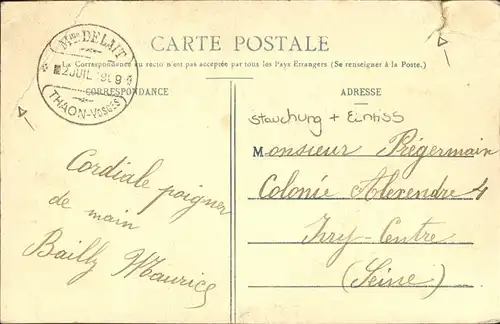 CARTE POSTALE
La Correspondance au recto n'est pas acceptée par tous les Pays Etrangers (Se renseigner à la Poste.)
Mme DELAIT
2 JUIL 1909
THAON-VOSGES
CORRESPONDANCE
Cordiale poignée
de main
Bailly Maurice
ADRESSE
Stauchung + Einriss
Monsieur Prégermain
Colonie Alexendre 4
Ivry-Centre
(Seine)